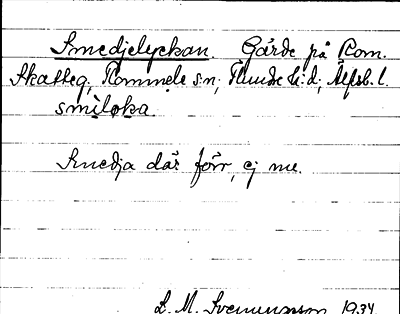 Smedjelyckan. Gärde på Rom.
Skatteg, Rommele sn; Flundre h:d, Älfsb. l.
smiløka.
Smedja där förr, ej nu.
L. M. Svenungsson 1934.